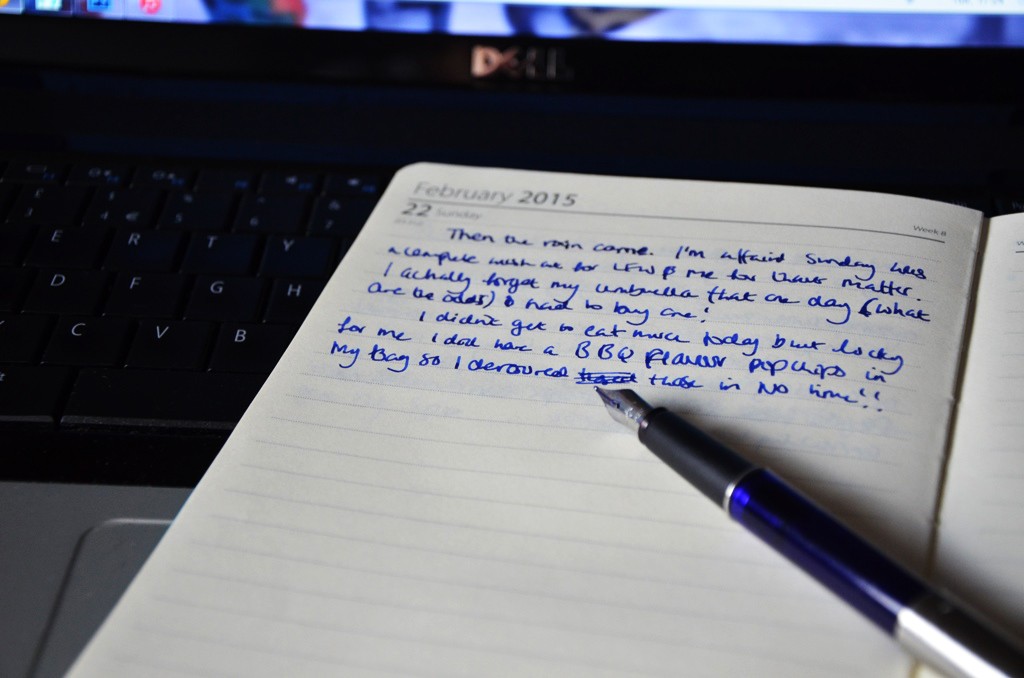 DELL
E R T Y
D F G H
C V B
February 2015
22 Sunday
Week 8
Then the rain came. I'm affaird Sunday was
a complete wash out for LFW & me for that matter.
I actually forgot my umbrella that one day (what
are the odds) & had to buy one!
I didn't get to eat much today but lucky
for me I did have a BBQ flavour popchips in
my bag so I devoured those in NO time!!